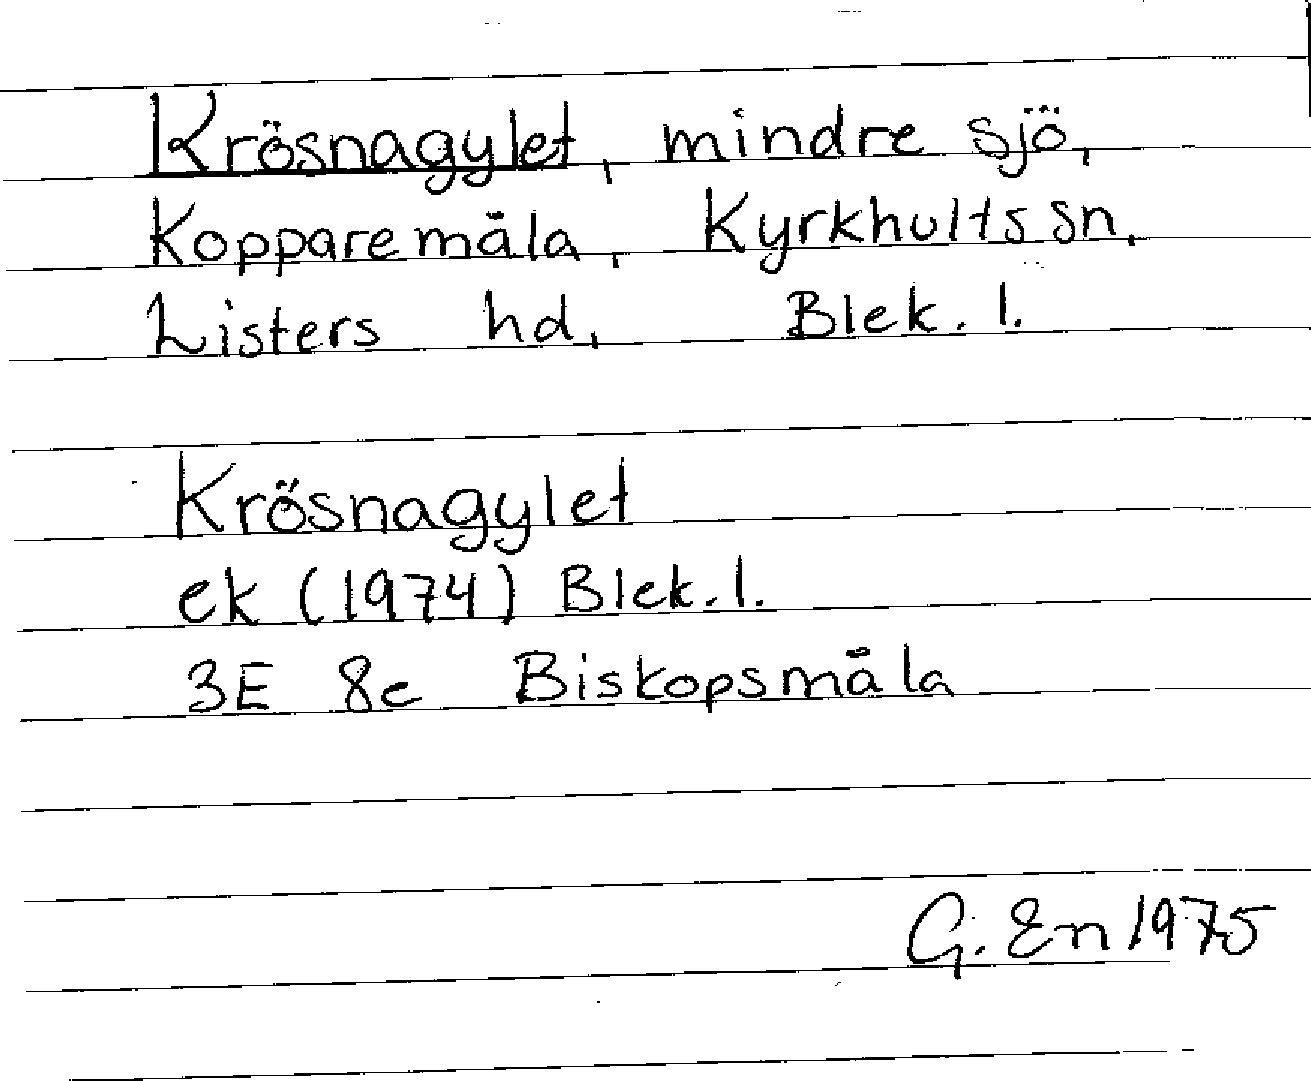 Krösnagylet, mindre sjö,
Kopparemåla, Kyrkhults sn,
Listers hd, Blek. l.
Krösnagylet
ek (1974) Blek. l.
3E 8c Biskopsmåla
G. En 1975